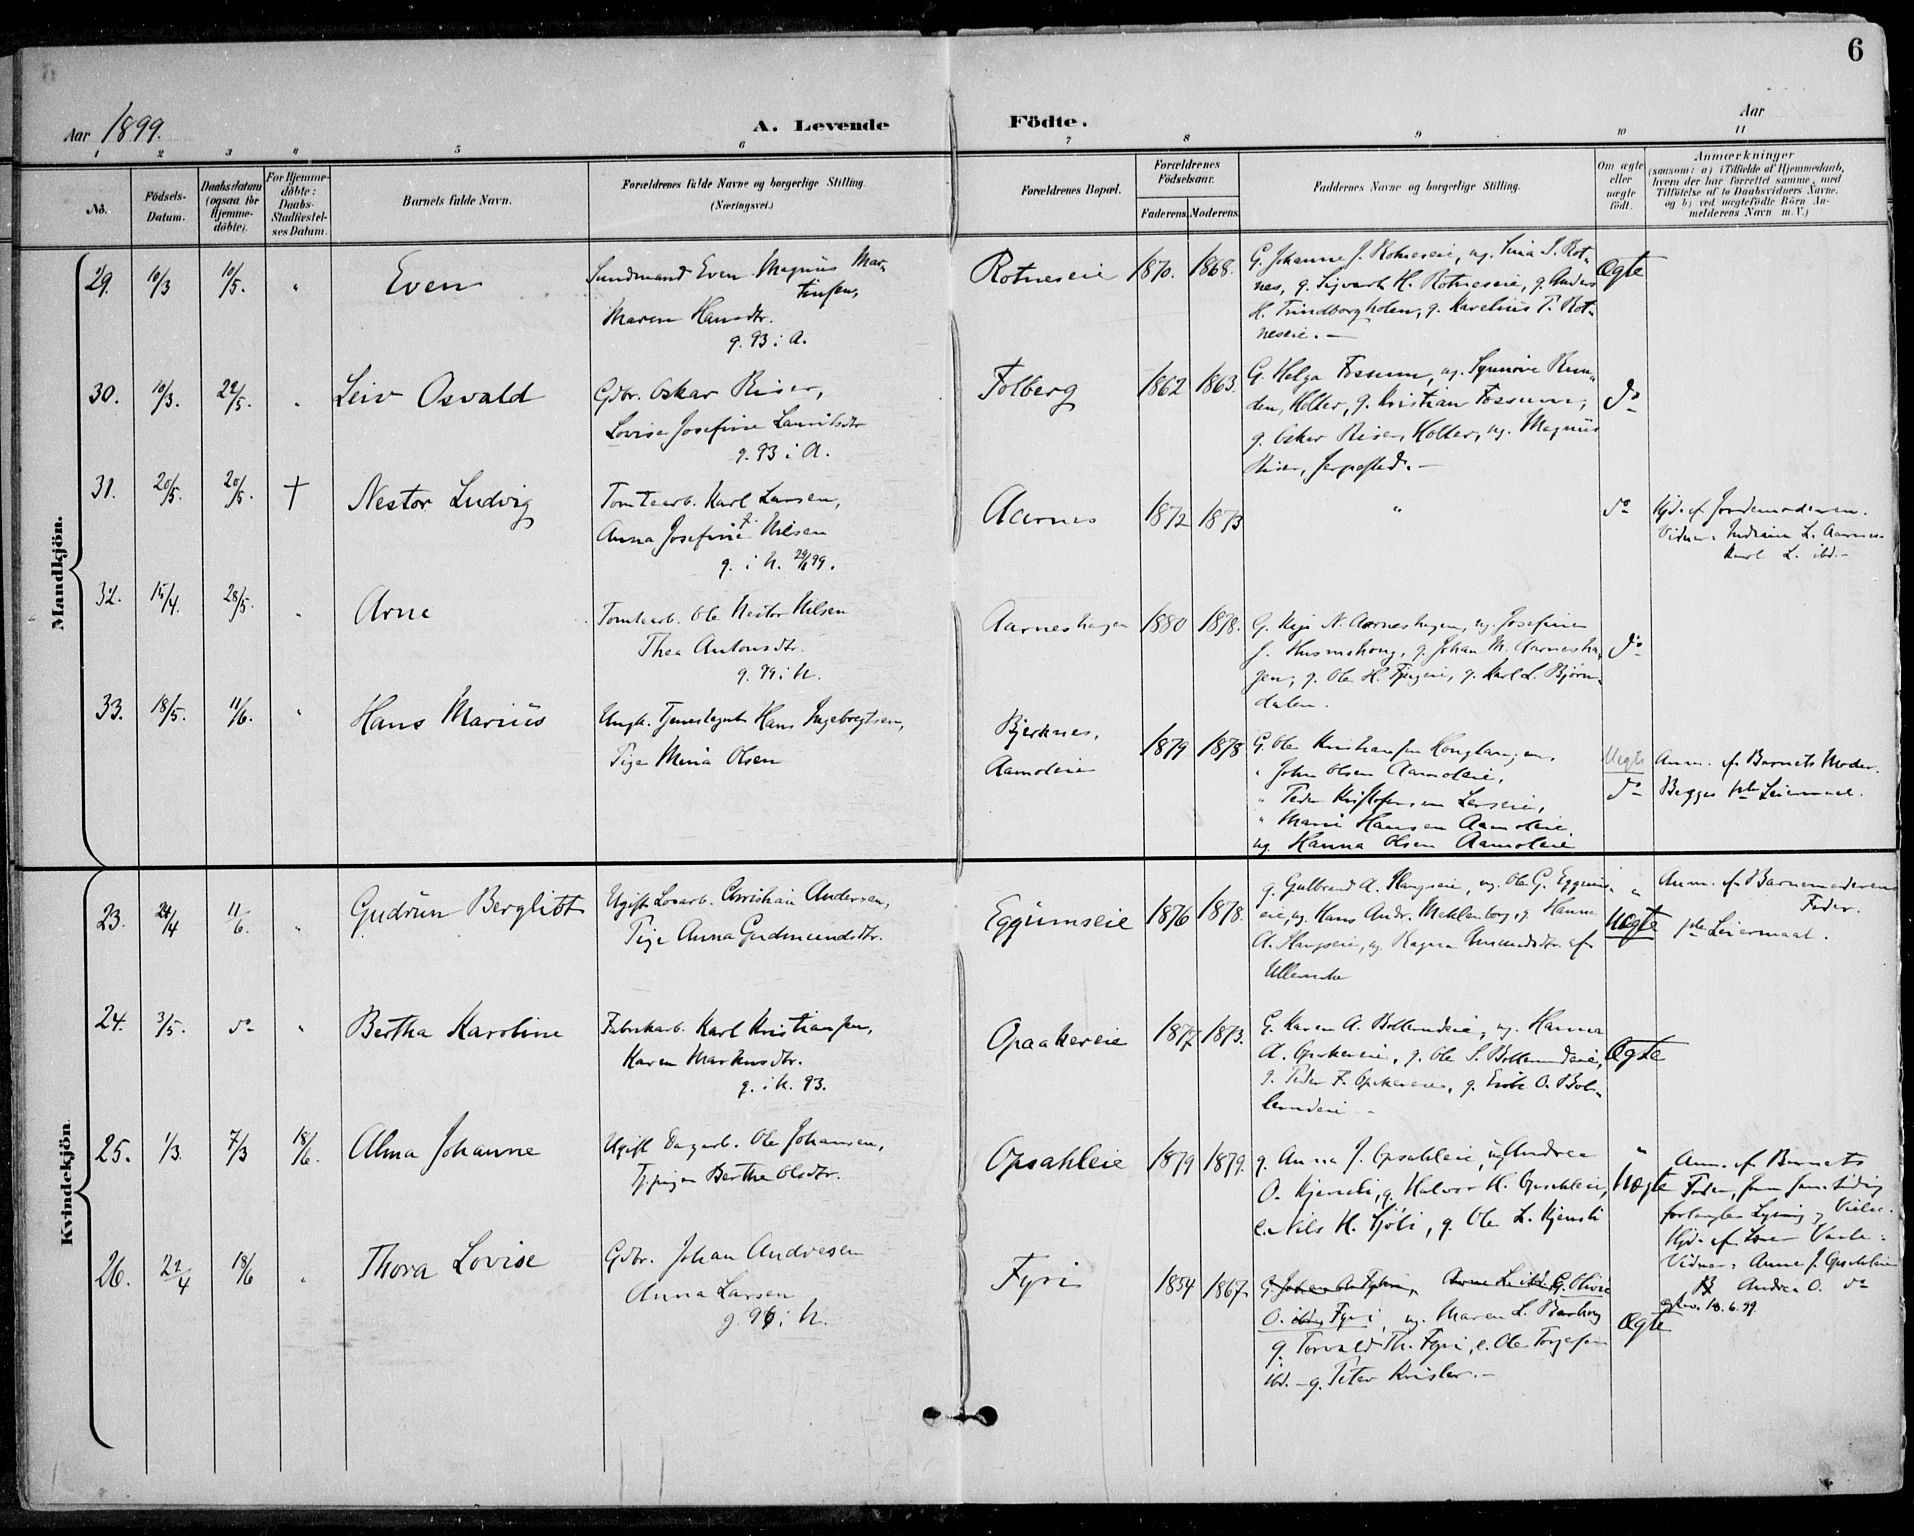 6
Aar 1899.
A. Levende Födte.
Aar
1 2 3 4 5 6 7 8 9 10 11
No.
Födsels-Datum.
Daabsdatum (ogsaa for Hjemme-döbte).
For Hjemme-döbte: Daabs-Stadfæstel-ses Datum.
Barnets fulde Navn.
Forældrenes fulde Navne og borgerlige Stilling.
(Næringsvei.)
Forældrenes Bopæl.
Forældrenes Födselsaar.
Faderens. Moderens.
Faddernes Navne og borgerlige Stilling.
Om ægte eller uægte födt.
Anmærkninger
(saasom: a) i Tilfælde af Hjemmedaab, hvem der har forrettet samme, med Tilföielse af to Daabsvidners Navne, og b) ved uægtefödte Börn An-melderens Navn m. V.)
Mandkjön.
29. 10/3 10/5. "
Even
Sundmand Even Magnus Mar-
tinsen,
Maren Hansdtr.
g. 93 i A.
Rotneseie 1870. 1868.
G. Johanne J. Rotneseie, ug. Lina S. Rot-
nes, g. Sigvart H. Rotneseie, g. Anders
H. Trindborgholen, g. Karelius P. Rot-
neseie. —
Ægte
30. 10/3. 22/5. "
Leiv Osvald
Gdbr. Oskar Riser,
Lovise Josefine Lauritsdtr
g. 93 i A.
Folberg 1862 1863.
G. Helga Fossum, ug. Synnöve Run-
den, Holter, g. Kristian Fossum,
g. Osker Riser, Holter, ug. Magnus
Riser,
do
31. 20/5. 20/5. †
Nestor Ludvig
Tomtearb. Karl Larsen,
Anna Josefine Nilsen
g. i N.
Aarnes 1872 1873
"
do
Hjd. af Jordemoderen.
Vidner: L. Aarnes
Karl L. ibd. -
32. 15/4. 28/5. "
Arne
Tomtearb. Ole Nestor Nilsen
Thea Antonsdtr.
g. 99 i N.
Aarneshagen 1880 1878.
G. N. Aarneshagen, ug. Josefine
J. Husmohoug, g. Johan M. Aarnesha-
gen, g. Ole H. g. Karl L. Bjørn-
dalen.
do
33. 18/5. 11/6. "
Hans Marius
Ungk. Tjenestegut Hans Ingebrigtsen,
Pige Mina Olsen
Bjerknes,
Aamoteie
1879 1878
G. Ole Kristiansen
" John Olsen Aamoteie,
" Peder Kristofersen
" Marie Hansen Aamoteie.
ug. Hanna Olsen Aamoteie
Uægte
do
Anm. af Barnets Moder.
Begges 1ste Leiermaal.
Kvindekjön.
23. 24/4 11/6. "
Gudrun Berglibt
Ugift Løsarb. Christian Andersen,
Pige Anna Gudmundsdtr.
Eggumseie 1876 1878.
g. Gulbrand A. Haugseie, ug. Ole G. Eggums-
eie, ug. Hans Andr. Meklenborg, g. Hanna
A. Haugseie, ug. Ragna Amundsdtr. af
Ullensaker
"
Uægte
Anm. af Barnemoderens
Fader.
1ste Leiermaal.
24. 3/5. do "
Bertha Karoline
Fabrikarb. Karl Kristiansen,
Karen Markusdtr.
g. i N. 93.
Opaakereie 1877 1873.
G. Karen A. Bollerudeie, ug. Hanna
A. Opakereie, g. Ole S. Bollerudeie,
g. Peder F. Opakereie, g. Erik O. Bol-
lerudeie —
Ægte
25. 1/3. 7/3 18/6.
Alma Johanne
Ugift Dagarb. Ole Johansen,
Tj.pigen Berthe Olsdtr.
Opsahleie 1879 1879.
g. Anna J. Opsahleie, ug Andrea
O. Kjensli, g. Halvor H. Opsahleie,
e. Nils H. Sjöli, g. Ole L. Kjensli
"
Uægte
Anm. af Barnets
Fader, som samtidig
forlangte Lysning og Vielse.
Hjd. af
Vidner: Anna J. Opsahleie
Andrea O. do
18.6.99
26. 22/4 18/6 "
Thora Lovise
Gdbr. Johan Andresen
Anna Larsen
g. 96 i N.
Fyri 1854 1867.
G. Olivie
O. Fyri, ug. Maren L.
g. Torvald Th. Fyri, e. Ole Torgersen
ibd. - g. Peter Kvisler. -
Ægte